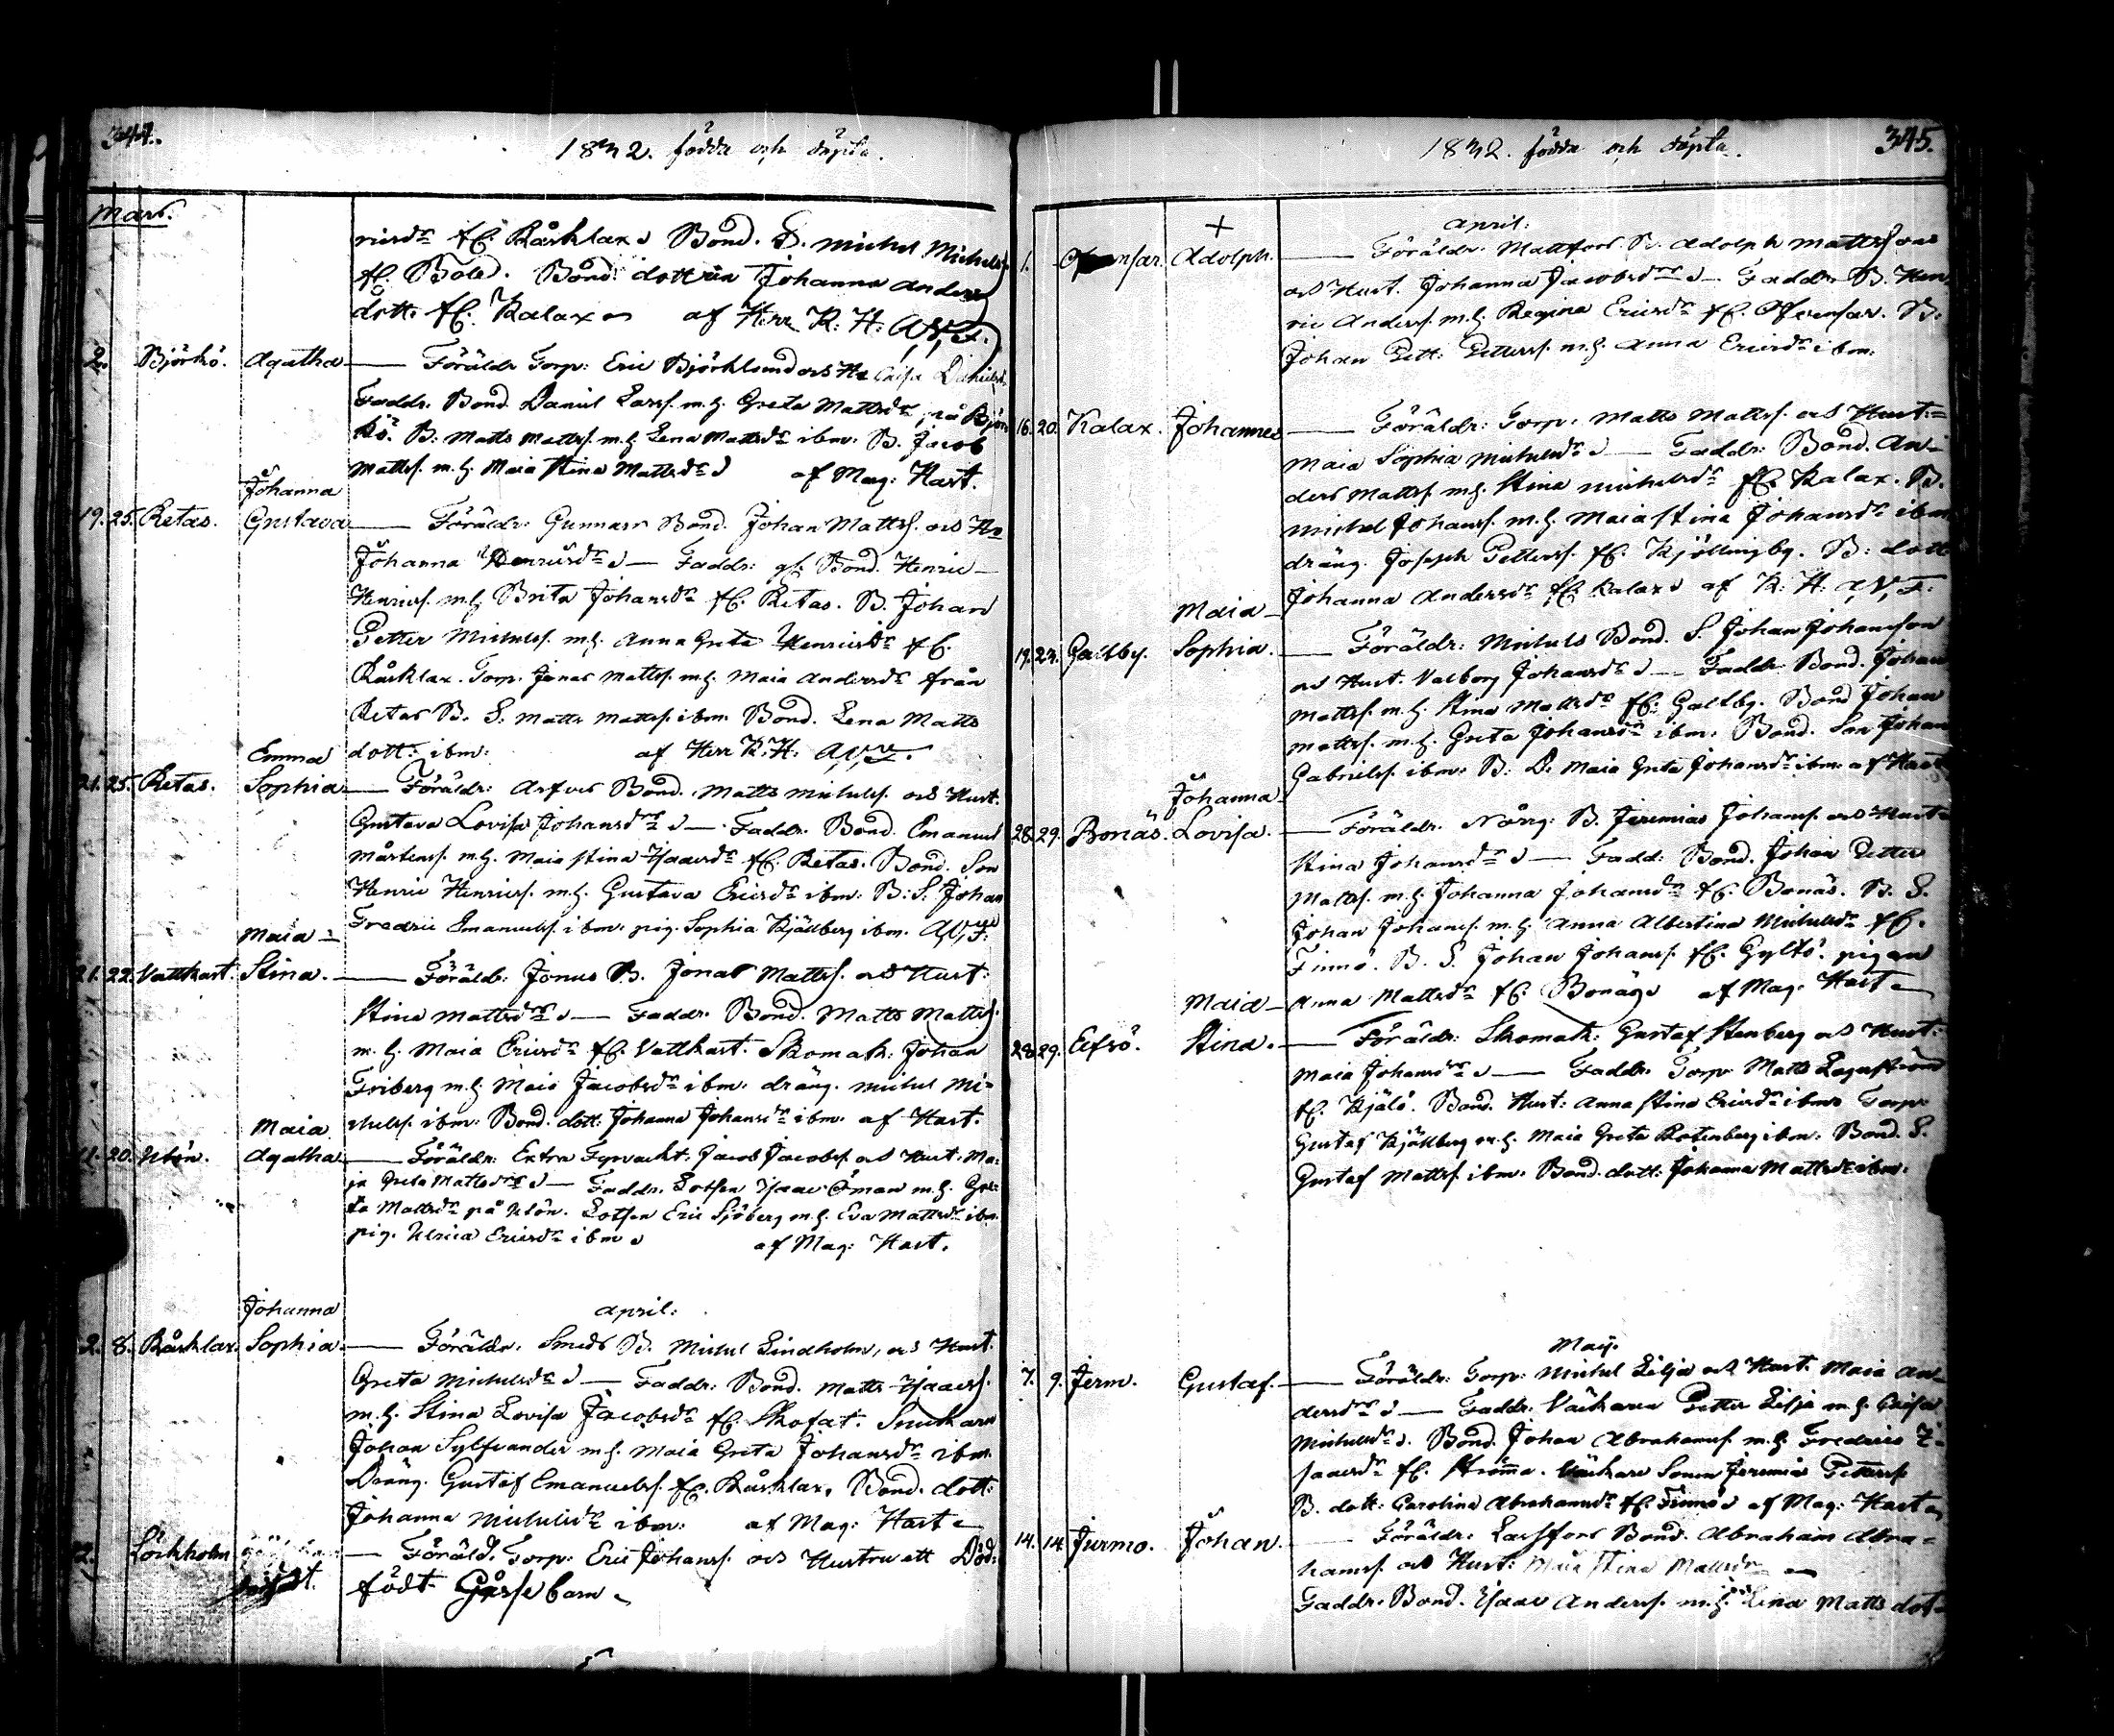 344.
1832. födde och döpta.
Mars.
ricsdr fr. Råsklax Bond. D. Michel Michels
fr. Böle. Bond. dottren Johanna Anders
dott. fr. Kalax af Herr K. H. A.V.F.
2. Björkö. Agatha — Föräldr Torp: Eric Björklund och H. Caisa Daniels
Faddr. Bond Daniel Larss. m.h. Greta Mattsdr, på Björ
kö. B. Matts Mattss. m.h. Lena Mattsdr ibm. B. Jacob
Mattss. m.h. Maia Stina Mattsdr af Mag: Hast.
Johanna
19. 25. Retas. Gustava — Föräldr: Gunnars Bond. Johan Mattss. och H.
Johanna Henricsdr — Faddr: gl. Bond. Henric
Henricss. m.h. Brita Johansdr fr. Retas. B. Johan
Petter Michelss. m.h. Anna Greta Henricsdr fr.
Råsklax. Torp. Jonas Mattss. m.h. Maia Andersdr från
Retas B. S. Matts Mattss. ibm. Bond. Lena Matts
dott: ibm: af Herr K. H. A.V.F.
Emma
21. 25. Retas. Sophia — Föräldr: Arfvas Bond. Matts Michelss. och Hust.
Gustava Lovisa Johansdr — Faddr. Bond. Emanuel
Mårtenss. m.h. Maia Stina Isaacsdr fr. Retas. Bond. Son
Henric Henricss. m.h. Gustava Ericsdr ibm: B: S. Johan
Fredric Emanuelss. ibm. pig. Sophia Kjällberg ibm. A.V.F.
Maia
21. 22. Vattkast. Stina. — Föräld: Jonus B. Jonas Mattss. och Hust:
Stina Mattsdr — Faddr. Bond. Matts Mattss.
m.h. Maia Ericsdr fr. Vattkast. Skomak: Johan
Friberg m.h. Maia Jacobsdr ibm. dräng. Michel Mi-
chelss. ibm: Bond. dott: Johanna Johansdr ibm. af Hast.
Maia
11. 20. Utön. Agatha — Föräldr: Extra Fyrvackt: Jacob Jacobss. och Hust. Ma-
ja Greta Mattsdr — Faddr. Lotsen Isaac Öman m.h. Gre-
ta Mattsdr på Utön. Lotsen Eric Sjöberg m.h. Eva Mattsdr ibm.
pig. Ulrica Ericsdr ibm af Mag: Hast.
April:
Johanna
2. 8. Råsklax. Sophia — Föräldr. Smeds B. Michel Lindholm, och Hust.
Greta Michelsdr — Faddr: Bond. Matts Isaacss.
m.h. Stina Lovisa Jacobsdr fr. Skofat.
Johan Sylfvander m.h. Maia Greta Johansdr ibm.
Dräng. Gustaf Emanuelss. fr. Råsklax, Bond. dott:
Johanna Michelsdr ibm: af Mag: Hast
2. Löckholm — Föräld. Torp. Eric Johanss. och Hustru ett Död-
födt Gåssebarn
345.
1832. födde och döpta.
April:
+
1. Adolph. — Föräldr: Mattfors B. Adolph Mattsson
och Hust. Johanna Jacobsdr — Faddr B. Hen
ric Anderss. m.h. Regina Ericsdr fr. B.
Johan Pett: Petterss. m.h. Anna Ericsdr ibm:
16. 20. Kalax. Johannes — Föräldr: Torp. Matts Mattss. och Hust.
Maia Sophia Michelsdr — Faddr: Bond. An-
ders Mattss. m.h. Stina Michelsdr fr. Kalax. B.
Michel Johanss. m.h. Maia Stina Johansdr ibm
dräng. Joseph Petterss. fr. Kjöllingby. B: dott
Johanna Andersdr fr. Kalax af K. H. A.V.F.
Maia
19. 23. Galtby. Sophia. — Föräldr: Michels Bond. S. Johan Johansson
och Hust. Valborg Johansdr — Faddr. Bond. Johan
Mattss. m.h. Stina Mattsdr fr. Galtby. Bond Johan
Mattss. m.h. Greta Johansdr ibm: Bond. Son Johan
Gabrielss. ibm: B: D: Maia Greta Johansdr ibm: af Hast
Johanna
28. 29. Bonäs. Lovisa. — Föräldr. Nörrg: B. Jeremias Johanss. och Hust
Stina Johansdr — Fadd: Bond. Johan Petter
Mattss. m.h. Johanna Johansdr fr. Bonäs. B. S.
Johan Johanss. m.h. Anna Albertina Michelsdr fr.
Finnö. B. S. Johan Johanss. fr. Gyltö. pigan
Anna Mattsdr fr. Bonäs af Mag. Hast
Maia
28. 29. Elfsö. Stina. — Föräldr: Skomak: Gustaf Stenberg och Hust:
Maia Johansdr — Faddr. Torp. Matts Lagerström
fr. Kjälö. Bond. Hust: Anna Stina Ericsdr ibm Torp.
Gustaf Kjällberg m.h. Maia Greta Rotenberg ibm: Bond. S.
Gustaf Mattss. ibm. Bond. dott: Johanna Mattsdr ibm.
Maij.
7. 9. Jerm. Gustaf. — Föräldr: Torp: Michel Lilja och Hust. Maia An
dersdr — Faddr. Petter Lilja m.h. Caisa
Michelsdr. Bond. Johan Abrahamss. m.h. Fredrica I-
saacsdr fr. Strömma. Sonen Jeremias Petterss.
B. dott: Carolina Abrahamsdr fr. Finnö af Mag: Hast
14. 14. Jurmo. Johan. — Föräldr: Larsfors Bond. Abraham Abra-
hamss. och Hust: Maia Stina Mattsdr
Faddr. Bond. Isaac Anderss. m.h. Lena Matts dot-